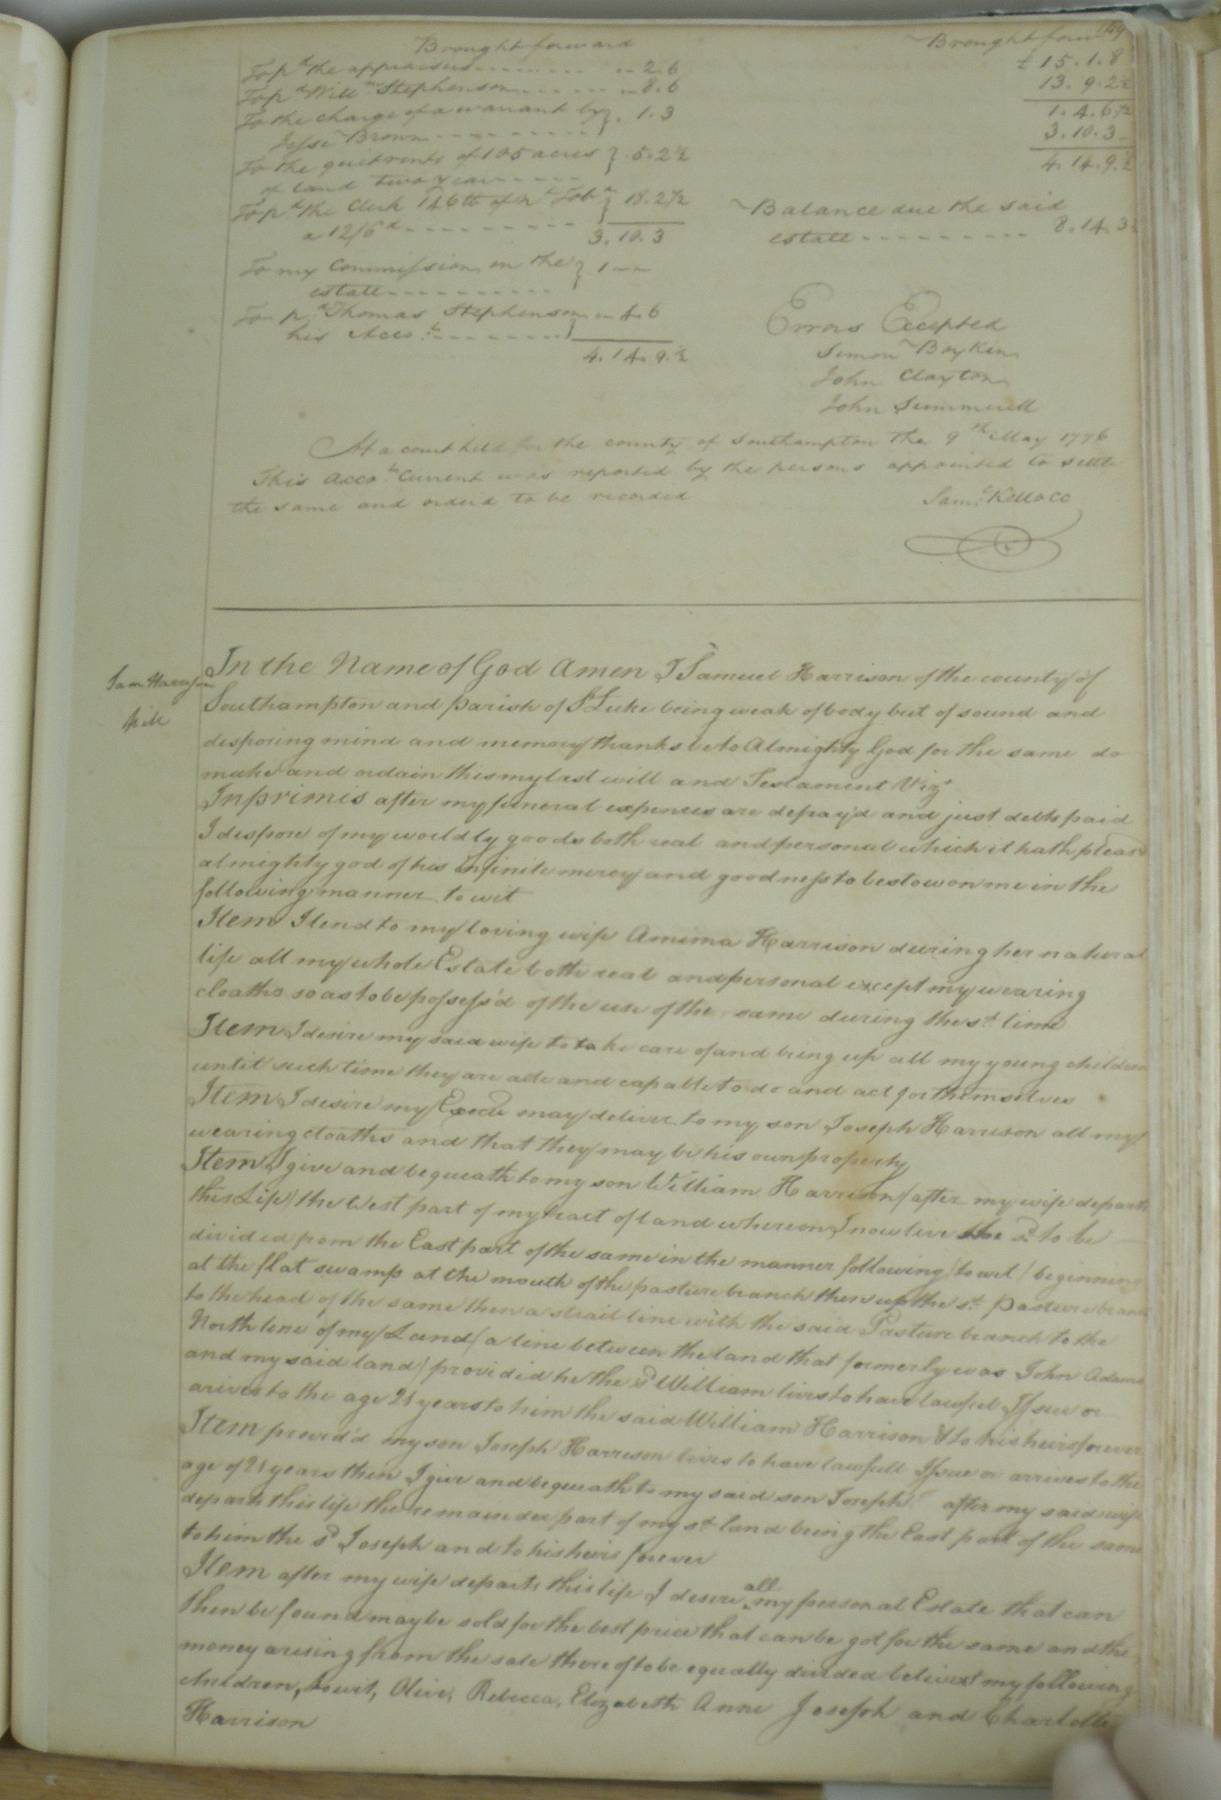 149
Brought forward
To pd the appraisers - - - - - - - - - 2.6
To pd Willm Stephenson - - - - - - - 8.6
To the charge of a warrant by } 1.3
Jesse Brown - - - - - - - -
To the quitrents of 105 acres } 5.2½
of land two years - - - - -
To pd the Clerk 146 lb of nt Tobo } 18.2½
a 12/6 d - - - - - - - - - -
3.10.3
To my commission on the } 1 - -
estate - - - - - - - - - -
To pd Thomas Stephenson - - 4.6
his Acco.t - - - - - - - - }
4.14.9½
Brought forwd
£15.1.8
13.9.2½
1.4.6½
3.10.3
4.14.9½
Balance due the said
estate - - - - - - - - - 8.14.3½
Errors Excepted
Simon Boykin
John Clayton
John Summerell
At a court held for the county of Southampton the 9th May 1776
This Acco.t Current was reported by the persons appointed to settle
the same and orderd to be recorded
Saml Kello CC
Sam Harrison
Will
In the Name of God Amen I Samuel Harrison of the county of
Southampton and parish of St Luke being weak of body but of sound and
disposing mind and memory thanks be to Almighty God for the same do
make and ordain this my last will and Testament Vizt
Inprimis after my funeral expences are defray'd and just debts paid
I dispose of my worldly goods both real and personal which it hath pleasd
almighty god of his infinite mercy and goodness to bestow on me in the
following manner to wit
Item I lend to my loving wife Amima Harrison during her natural
life all my whole Estate both real and personal except my wearing
cloaths so as to be possess'd of the use of the same during the sd time
Item I desire my said wife to take care of and bring up all my young children
until such time they are able and capable to do and act for themselves
Item I desire my Exects may deliver to my son Joseph Harrison all my
wearing cloaths and that they may be his own property
Item I give and bequeath to my son William Harrison (after my wife departs
this Life) the West part of my tract of land whereon I now live the sd to be
divided from the East part of the same in the manner following (to wit) beginning
at the flat swamp at the mouth of the pasture branch then up the sd pasture branch
to the head of the same then a strait line with the said Pasture branch to the
North line of my Land (a line between the land that formerly was John Adams
and my said land) provided he the sd William lives to have lawful Issue or
arives to the age 21 years to him the said William Harrison & to his heirs forever
Item provid'd my son Joseph Harrison lives to have lawfull Issue or arrives to the
age of 21 years then I give and bequeath to my said son Joseph after my said wife
departs this life the remainder part of my sd land being the East part of the same
to him the sd Joseph and to his heirs forever
Item after my wife departs this life I desire all my personal Estate that can
then be found may be sold for the best price that can be got for the same and the
money arising from the sale thereof to be equally divided betwixt my following
children, to wit, Olive, Rebecca, Elizabeth Anne Joseph and Charlotte
Harrison